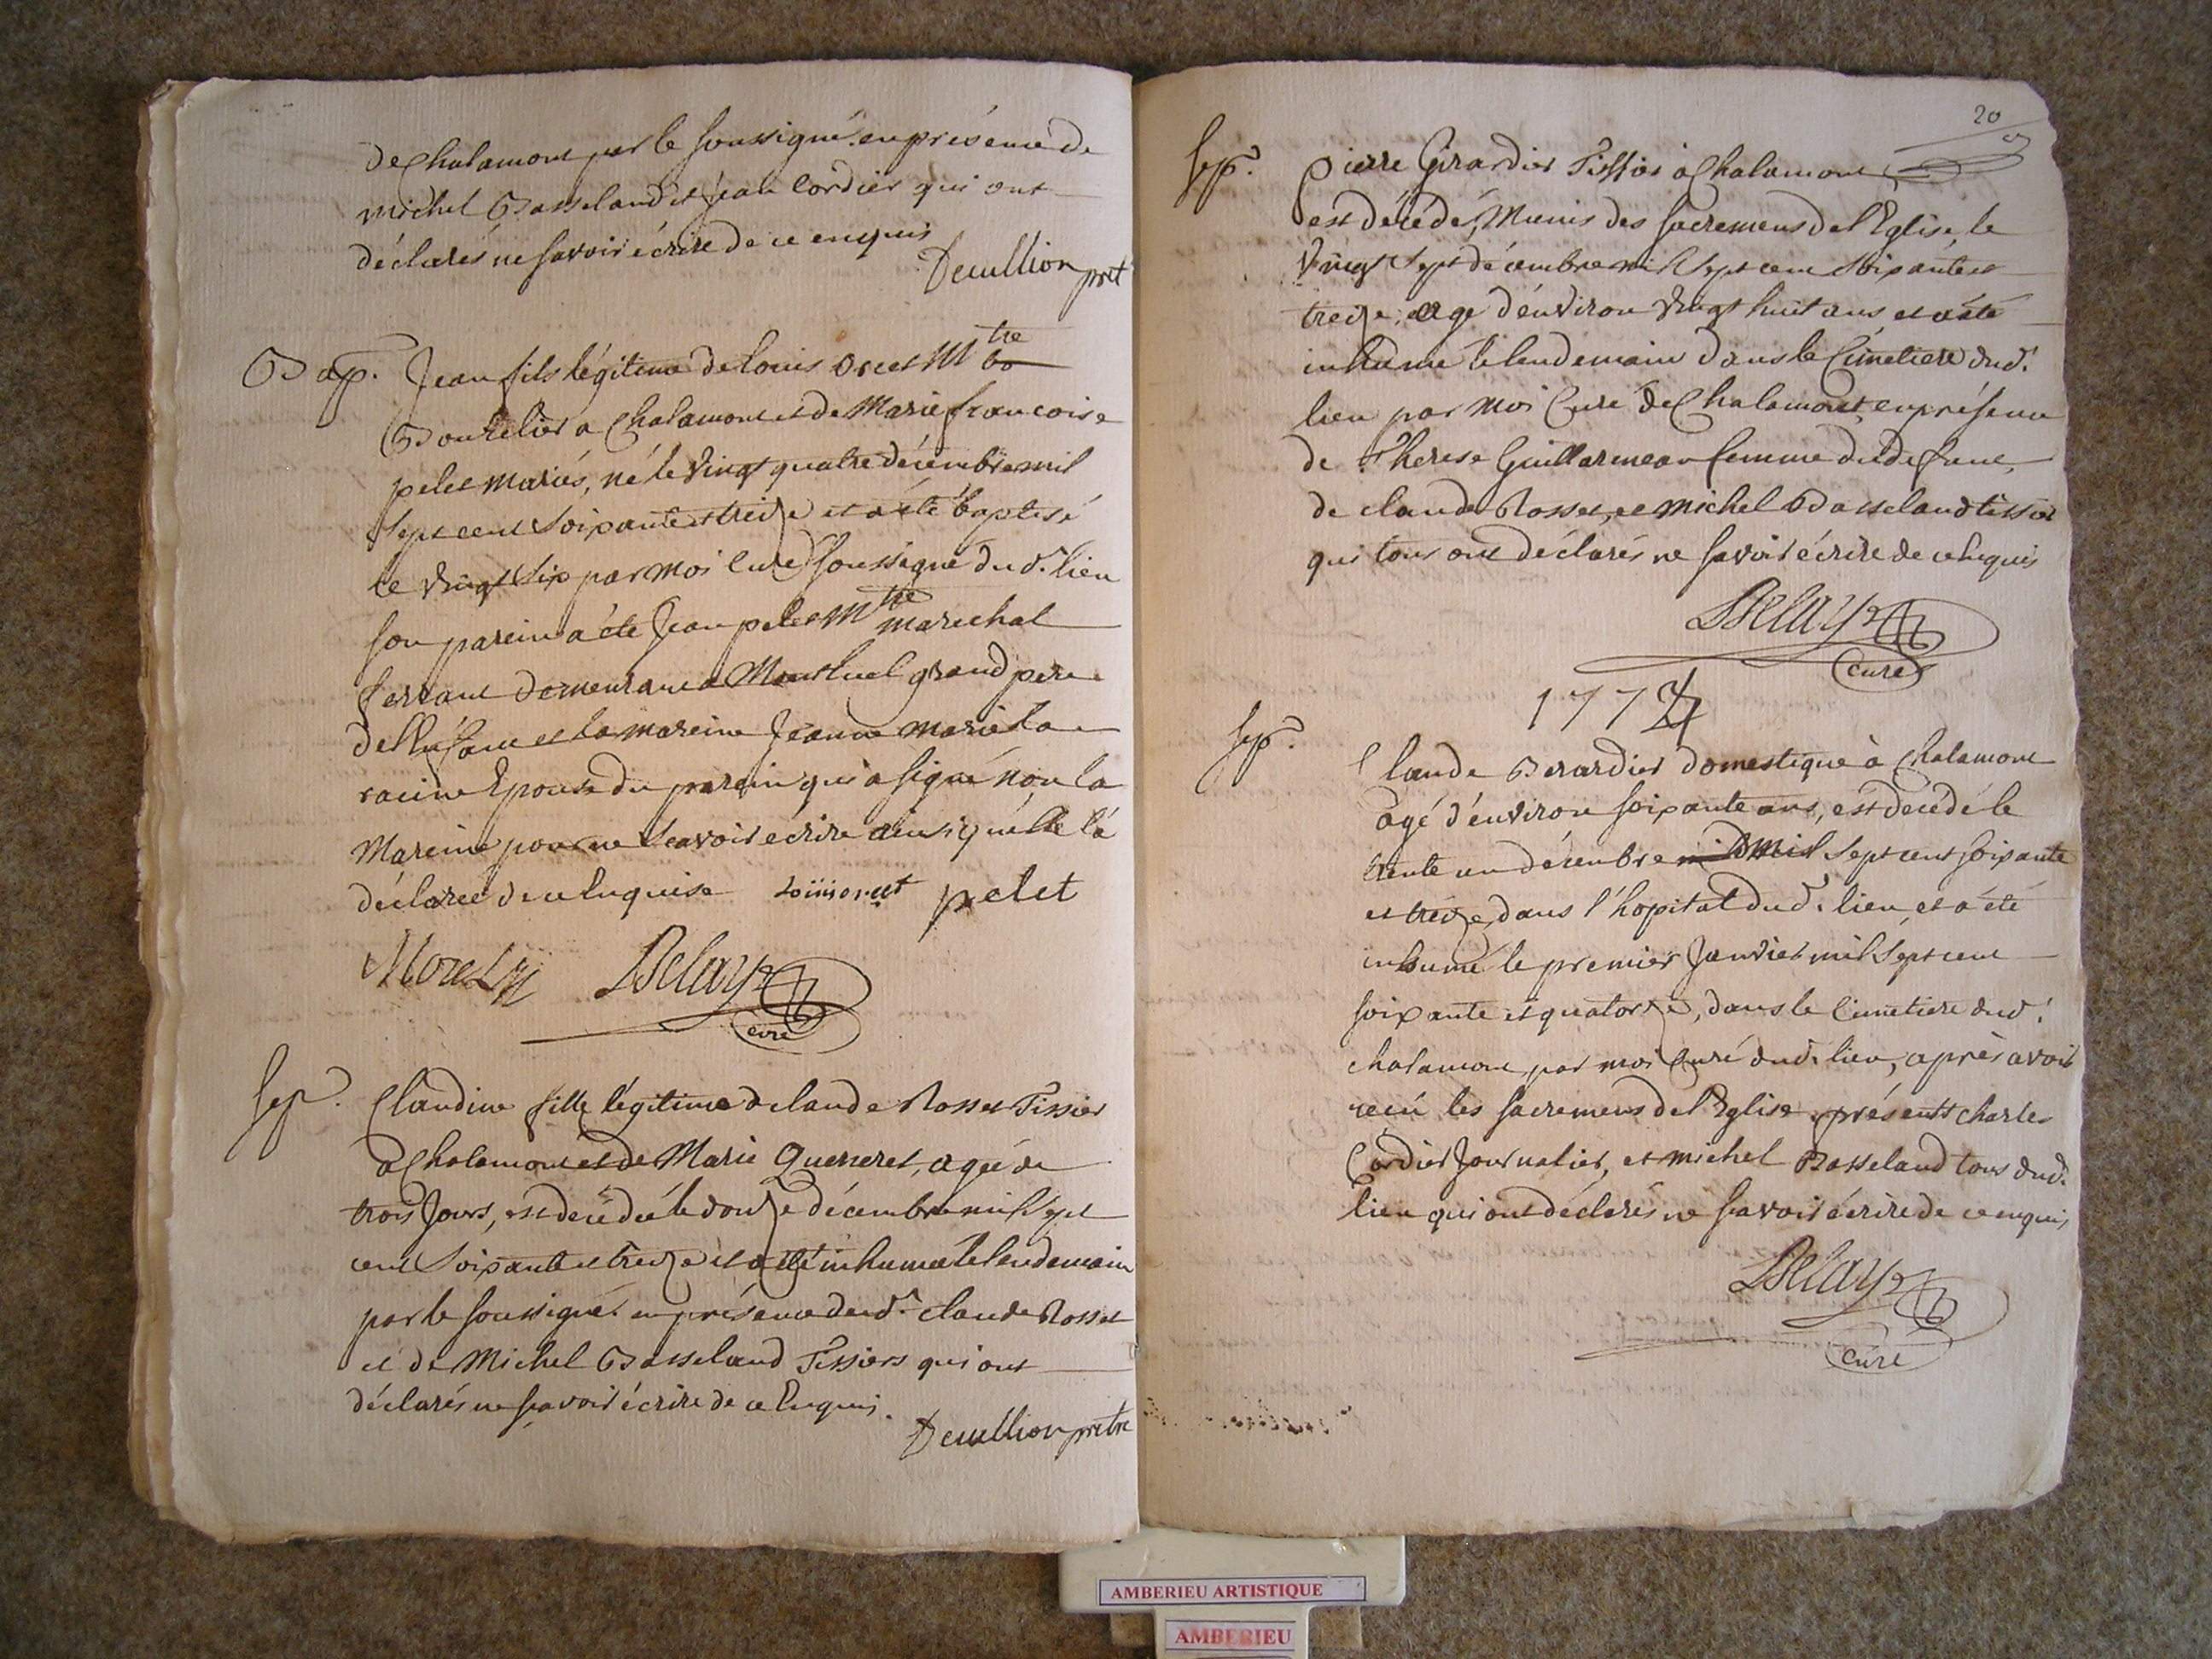 de Chalamont par le soussigné en présence de
Michel Basseland et Jean Cordier qui ont
déclarés ne savoir écrire de ce enquis
Decullion prêt
Bap. Jean fils légitime de Louis Orcet Mtre
Bourelier a Chalamont et de Marie francoise
pelet mariés, né le vingt quatre décembre mil
Sept cent Soixante et treize et a été baptisé
le vingt Six par moi Curé soussigné dud. lieu
son parein a été Jean pelet Mtre marechal
ferrant demeurant a Montluel grand pere
de l'Enfant et la mareine Jeanne Marie La
racine Epouse du parein qui a signé non la
Mareine pour ne Scavoir ecrire ainsi qu'elle l'a
déclarée de ce Enquise Loüis orcet pelet
Morel Delay
curé
sep. Claudine fille légitime de Claude Rosset Tissier
a Chalamont et de Marie Querneret, agée de
trois Jours, est décédée le douze décembre mil Sept
cent Soixante et treize et a été inhumée le lendemain
par le soussigné en présence dud. Claude Rosset
et de Michel Basseland Tissiers qui ont
déclarés ne scavoir écrire de ce Enquis.
Decullion prêtre
20
sep. pierre Girardier Tissier à Chalamont
est décédé, Munis des sacremens de l'Eglise, le
Vingt Sept décembre mil Sept cent Soixante et
treize, agé d'environ vingt huit ans et a été
inhumé le lendemain dans le Cimetiere dud.
lieu par moi Curé de Chalamont, en présence
de Therese Guillarmeau femme du defunt,
de claude Rosset, et Michel Basseland tissier
qui tous ont déclarés ne savoir écrire de ce Enquis
Delay
curé
1774
sep.
Claude Berardier domestique à Chalamont
agé d'environ soixante ans, est décédé le
trente un décembre mil Sept cent soixante
et treize, dans l'hopital dud. lieu, et a été
inhumé le premier Janvier mil Sept cent
soixante et quatorze, dans le Cimetiere dud.
Chalamont par moi Curé dud. lieu, après avoir
recû les sacremens de l'Eglise, présents charles
Cordier Journalier, et Michel Basseland tous dud.
lieu qui ont déclarés ne scavoir écrire de ce enquis
Delay
curé
AMBERIEU ARTISTIQUE
AMBERIEU